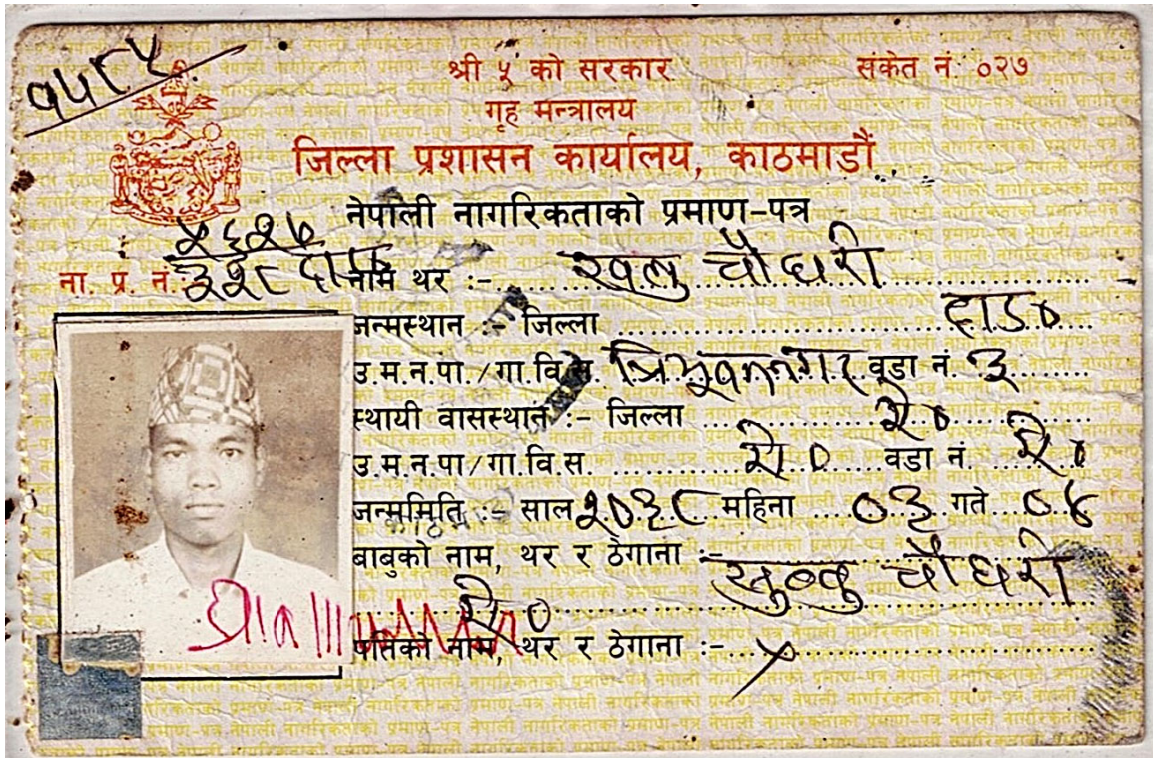 १५८५
श्री ५ को सरकार
संकेत नं. ०२७
गृह मन्त्रालय
जिल्ला प्रशासन कार्यालय, काठमाडौं
नेपाली नागरिकताको प्रमाण-पत्र
ना. प्र. नं.
नाम थर :- खलु चौधरी
जन्मस्थान :- जिल्ला दाङ
उ.म.न.पा./गा.वि.स. त्रिभुवननगर वडा नं. ३
स्थायी वासस्थान :- जिल्ला ऐ०
उ.म.न.पा/गा.वि.स. ऐ० वडा नं. ऐ०
जन्ममिति :- साल २०३८ महिना ०३ गते ०४
बाबुको नाम, थर र ठेगाना :- चौधरी
ऐ०
पतिको नाम, थर र ठेगाना :- ×